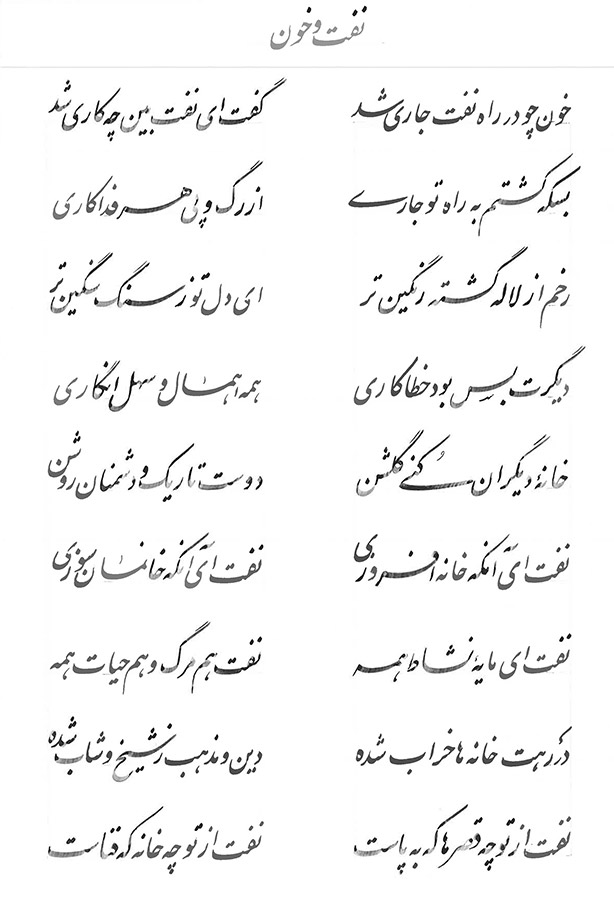 نفت و خون
خون چو در راه نفت جاری شد گفت ای نفت بین چه کاری شد
بسکه گشتم به راه تو جاری از رگ و پی هر فداکاری
زخم از لاله گشته رنگین تر ای دل تو ز سنگ سنگین تر
دیگرت بس بود خطاکاری همه اهمال و سهل انگاری
خانهٔ دیگران کنی گلشن دوست تاریک و دشمنان روشن
نفت ای آنکه خانه افروزی نفت ای آنکه خانمان سوزی
نفت ای مایهٔ نشاط همه نفت هم مرگ و هم حیات همه
در رهت خانه ها خراب شده دین و مذهب ز شیخ و شاب شده
نفت از تو چه قصرها که به پاست نفت از تو چه خانه که فناست